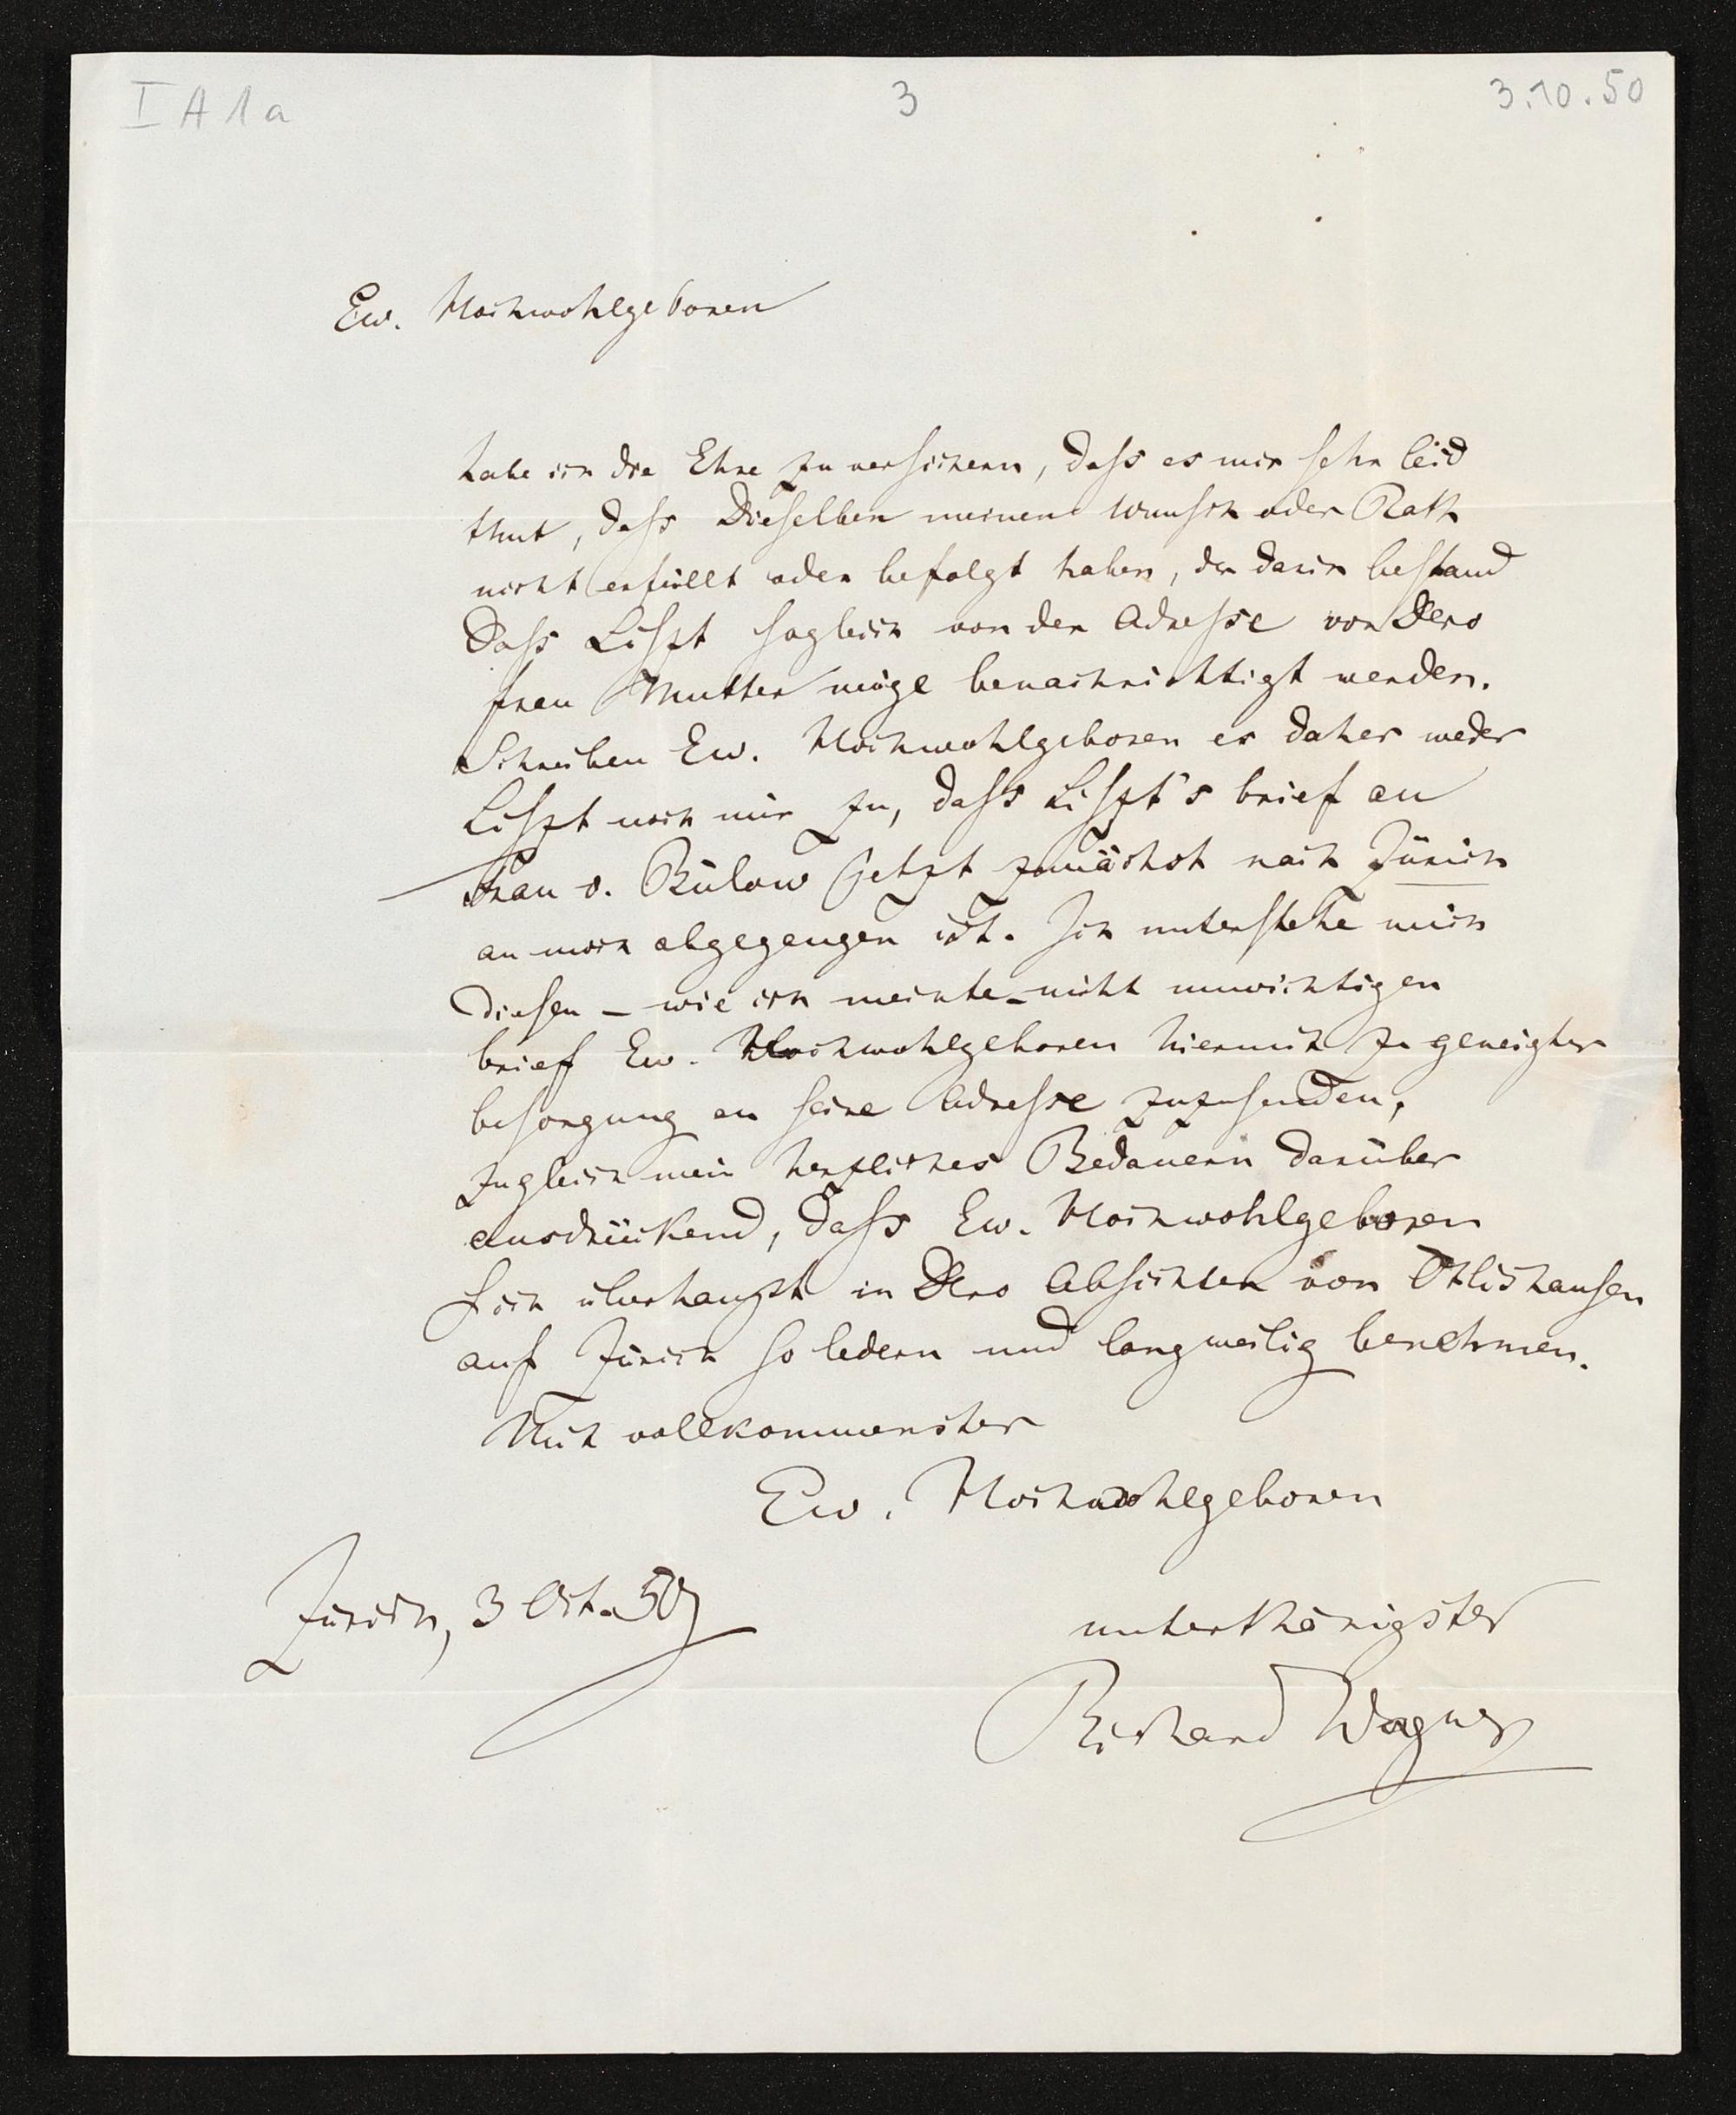 I A 1 a
3
3.10.50
Ew. Hochwohlgeboren
habe ich die Ehre zu versichern, daß es mir sehr leid
thut, daß Dieselben meinen Wunsch oder Rath
nicht erfüllt oder befolgt haben, der darin bestand
daß Liszt sogleich von der Adresse von Dero
frau Mutter möge benachrichtigt werden.
Schreiben Ew. Hochwohlgeboren es daher weder
Liszt noch mir zu, daß Liszt's brief an
Frau v. Bülow jetzt zunächst nach Zürich
an mich abgegangen ist. Ich unterstehe mich
diesen – wie ich meinte – nicht unwichtigen
brief Ew. Hochwohlgeboren hiermit zu geneigter
besorgung an seine Adresse zuzusenden,
zugleich mein herzliches Bedauern darüber
ausdrückend, daß Ew. Hochwohlgeboren
sich überhaupt in Dero Absichten von Ötlishausen
auf Zürich so ledern und langweilig benehmen.
Mit vollkommenster
Ew. Hochwohlgeboren
Zürich, 3 Oct. 50
unterthänigster
Richard Wagner